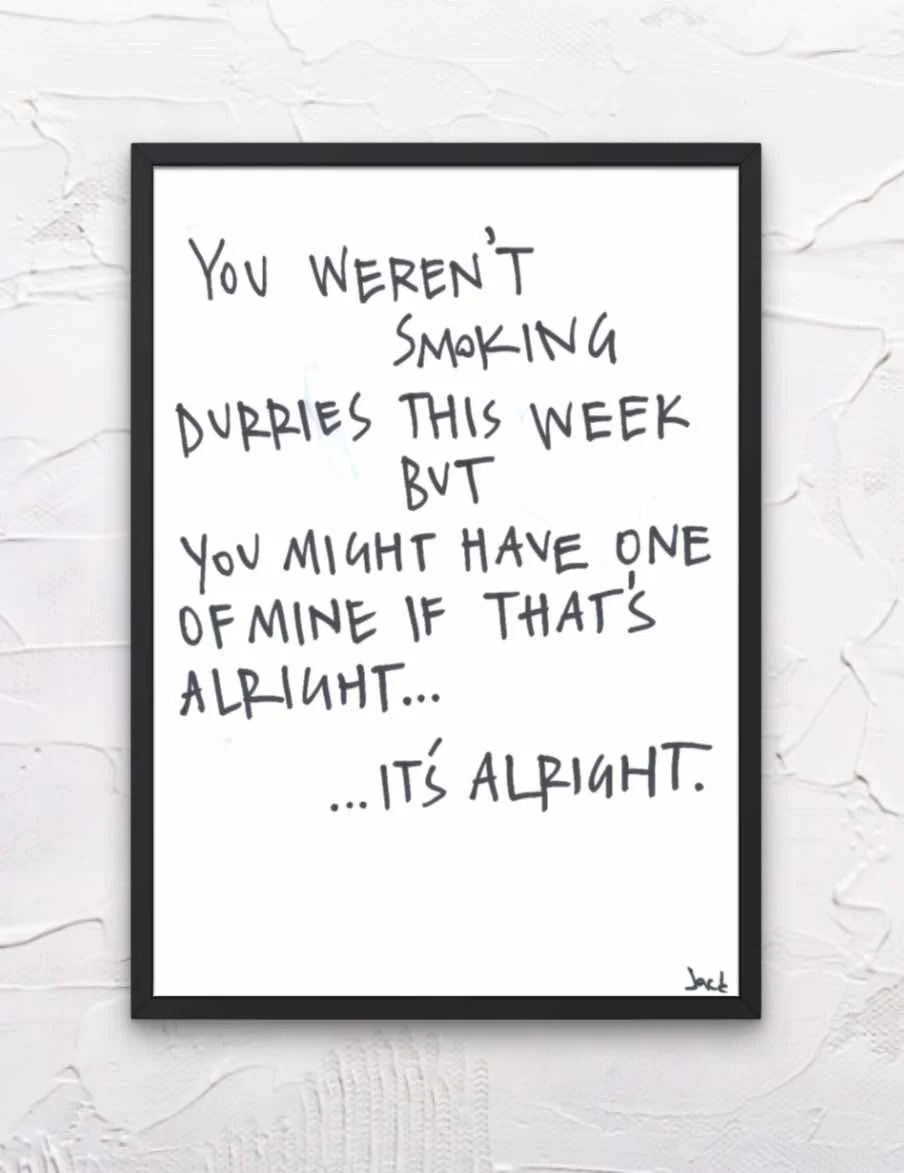 YOU WEREN'T
SMOKING
DURRIES THIS WEEK
BUT
YOU MIGHT HAVE ONE
OF MINE IF THAT'S
ALRIGHT...
...IT'S ALRIGHT.
Jack